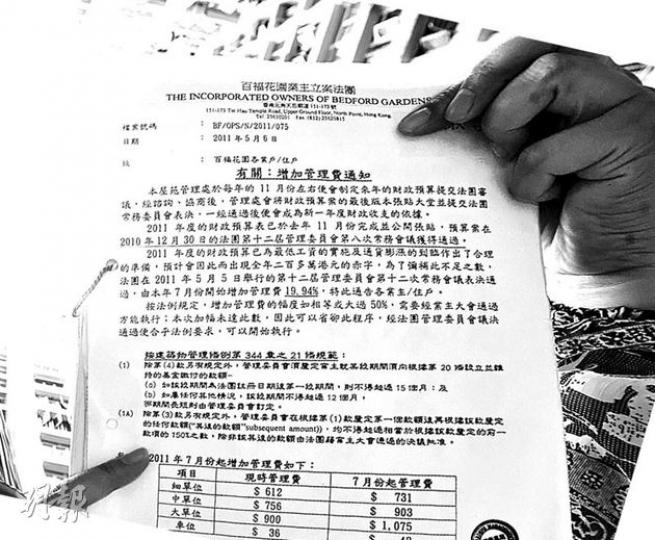 百福花園業主立案法團
THE INCORPORATED OWNERS OF BEDFORD GARDENS
香港北角天后廟道 151-173 號
151-173 Tin Hau Temple Road, Upper Ground Floor, North Point, Hong Kong
檔案號碼 : BF/OPS/N/2011/075
日期 : 2011 年 5 月 6 日
致 : 百福花園各業戶/住戶
有關：增加管理費通知
本屋苑管理處於每年的 11 月份左右便會制定來年的財政預算提交法團審
議，經諮詢、協商後，管理處會將財政預算案的最後版本張貼大堂並提交法團
常務委員會表決，一經通過後便會成為新一年度財政收支的依據。
2011 年度的財政預算表已於去年 11 月份完成並公開張貼，預算案在
2010 年 12 月 30 日的法團第十二屆管理委員會第八次常務會議獲得通過。
2011 年度的財政預算已為最低工資的實施及通貨膨漲的到臨作出了合理
的準備，預計會因此而出現全年二百多萬港元的赤字，為了彌補此不足之數，
法團在 2011 年 5 月 5 日舉行的第十二屆管理委員會第十二次常務會議表決通
過，由本年 7 月份開始增加管理費 19.94%，特此通告各業主/住戶。
按法例規定，增加管理費的幅度如相等或大過 50%，需要經業主大會通過
方能執行；本次加幅未達此數，因此可以省卻此程序，經法團管理委員會議決
通過便合乎法例要求，可以開始執行。
按建築物管理條例第 344 章之 21 條規範：
(1) 除第(4)款另有規定外，管理委員會須釐定業主就某段期間須向根據第 20 條設立並維
持的基金繳付的款額-
(a) 如該段期間為法團註冊日期後第一段期間，則不得超過 15 個月；及
(b) 如屬任何其他情況，該段期間不得超過 12 個月，
該期間長短則由管理委員會訂定。
(1A) 除第(3)款另有規定外，管理委員會在根據第(1)款釐定第一個款額後再根據該款釐定
的任何款額("其後的款額"subsequent amount))，均不得超過相當於根據該款釐定的前一
款項的 150%之數，除非該其後的款額由法團藉業主大會通過的決議批准。
2011 年 7 月份起增加管理費如下：
項目 現時管理費 7 月份起管理費
細單位 $ 612 $ 731
中單位 $ 756 $ 903
大單位 $ 900 $ 1,075
車位 $ 36
明報